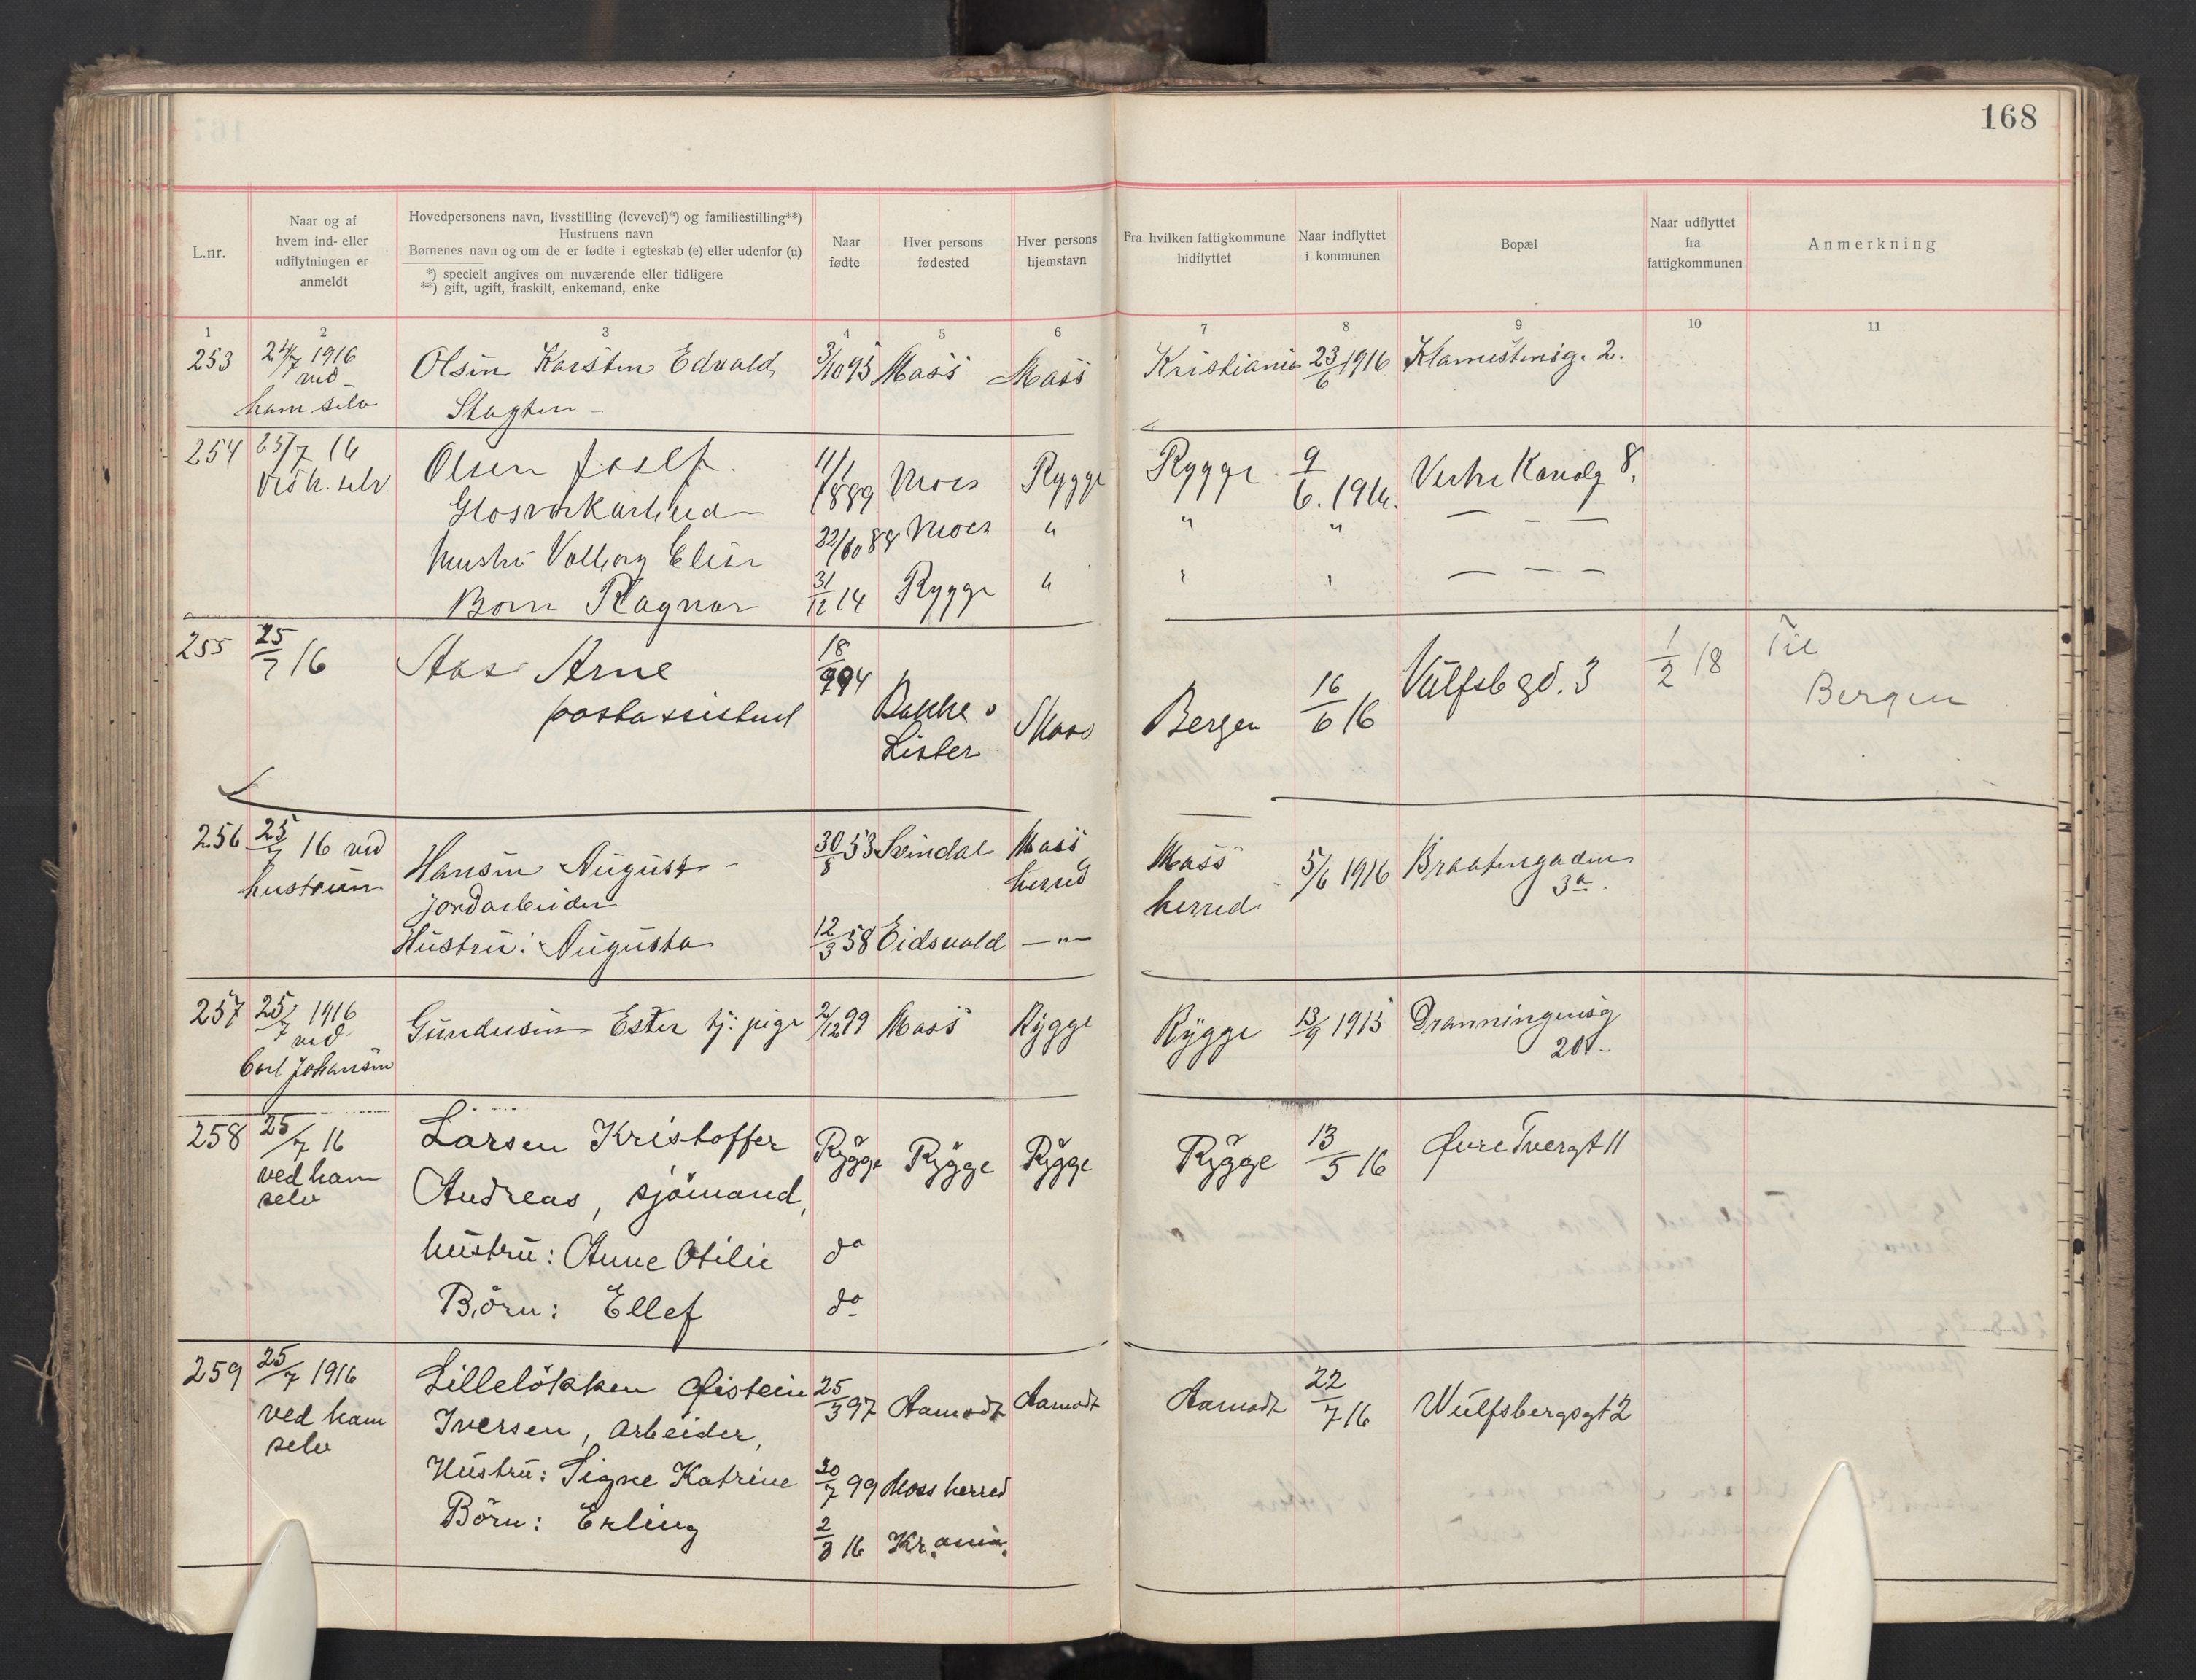 168
L.nr.
Naar og af
hvem ind- eller
udflytningen er
anmeldt
Hovedpersonens navn, livsstilling (levevei)*) og familiestilling**)
Hustruens navn
Børnenes navn og om de er fødte i egteskab (e) eller udenfor (u)
*) specielt angives om nuværende eller tidligere
**) gift, ugift, fraskilt, enkemand, enke
Naar
fødte
Hver persons
fødested
Hver persons
hjemstavn
Fra hvilken fattigkommune
hidflyttet
Naar indflyttet
i kommunen
Bopæl
Naar udflyttet
fra
fattigkommunen
Anmerkning
1 2 3 4 5 6 7 8 9 10 11
253 24/7 1916 Olsen Karsten Edvald 3/10 95 Moss Moss Kristiania 23/6 1916 2.
ved
ham selv
254 25/7 16 Olsen Josef. 11/1 1889 Moss Rygge Rygge 9/6. 1916. Vestre Kanalg 8.
Glasverkarbeid
hustru Valborg Elise 22/10 88 Moss " " "
Born Ragnar 31/12 14 Rygge "
255 25/7 16 Aas Arne 18/9 94 Bakke Moss Bergen 16/6 16 Vülfsb gd. 3 1/2 18 Til
postassistent Lister Bergen
256 25/7 16 ved Hansen August 30/8 53 Svindal Moss Moss 5/6 1916 Braatengaden
hustrüen jordarbeider herred herred 3a.
Hüstrü: Augusta 12/3 58 Eidsvold — " —
257 25/7 1916 Gundersen Ester tj: pige 2/12 99 Moss Rygge Rygge 13/9 1915 Dronningensg
ved 20
Carl Johansen
258 25/7 16 Larsen Kristoffer Rygge Rygge Rygge Rygge 13/5 16 Øvre Tvergt 11
ved ham Andreas, sjömand,
selv
hüstrü: Anne Otilie do
Börn: Ellef do
259 25/7 1916 Lillelökken Øistein 25/3 97 Aamodt Aamodt Aamodt 22/7 16 Wülfsbergsgt 2
ved ham Iversen, Arbeider,
selv
Hüstrü: Signe Katrine 30/7 99 Moss herred
Börn: Erling 2/3 16 Kr.ania.